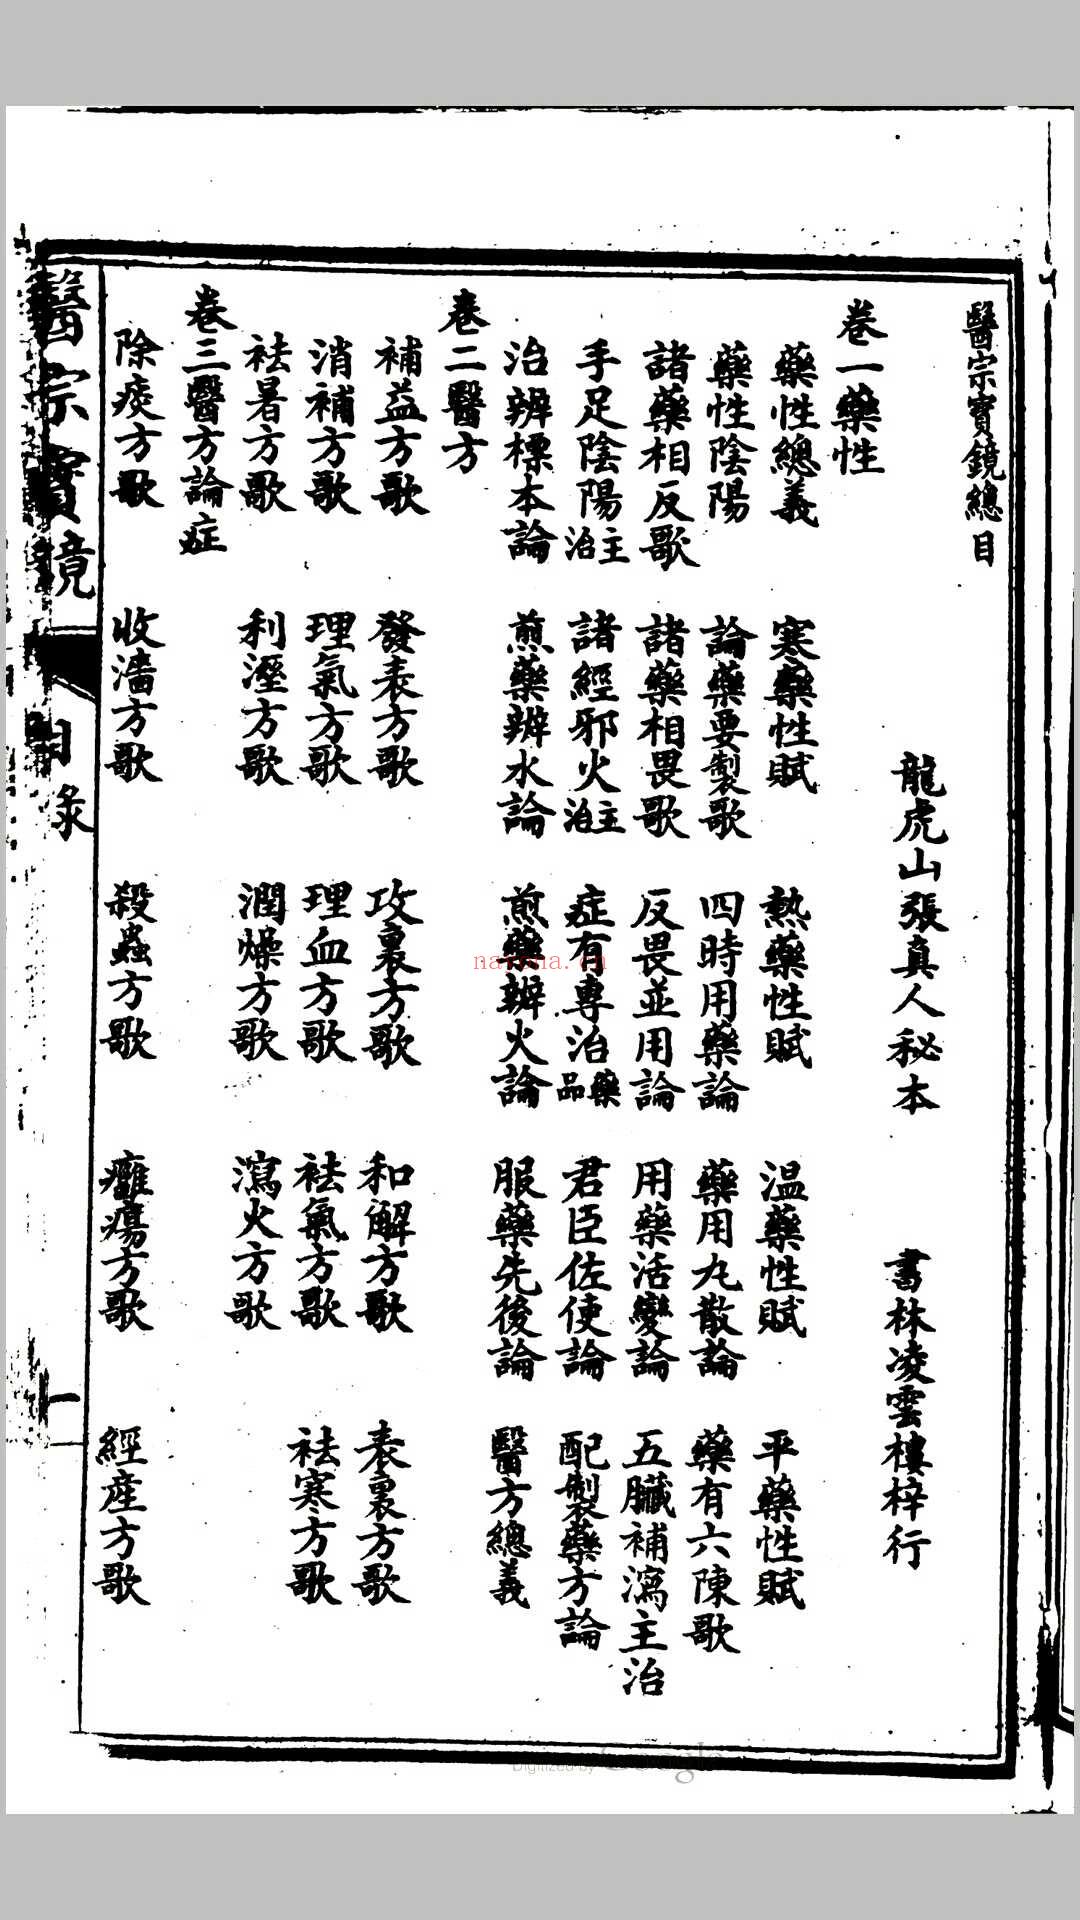 醫宗寳鏡總目
龍虎山張真人秘本 書林凌雲樓梓行
卷一藥性
藥性總義 寒藥性賦 熱藥性賦 温藥性賦 平藥性賦
藥性陰陽 論藥要製歌 四時用藥論 藥用丸散論 藥有六陳歌
諸藥相反歌 諸藥相畏歌 反畏並用論 用藥活變論 五臟補瀉主治
手足陰陽主治 諸經邪火主治 症有專治藥品 君臣佐使論 配製藥方論
治辨標本論 煎藥辨水論 煎藥辨火論 服藥先後論 醫方總義
卷二醫方
補益方歌 發表方歌 攻裏方歌 和解方歌 表裏方歌
消補方歌 理氣方歌 理血方歌 祛氣方歌 祛寒方歌
祛暑方歌 利溼方歌 潤燥方歌 瀉火方歌
卷三醫方論症
除痰方歌 收濇方歌 殺蟲方歌 癰瘍方歌 經産方歌
醫宗寳鏡 目録 一
nayona.cn
Digitized by Google